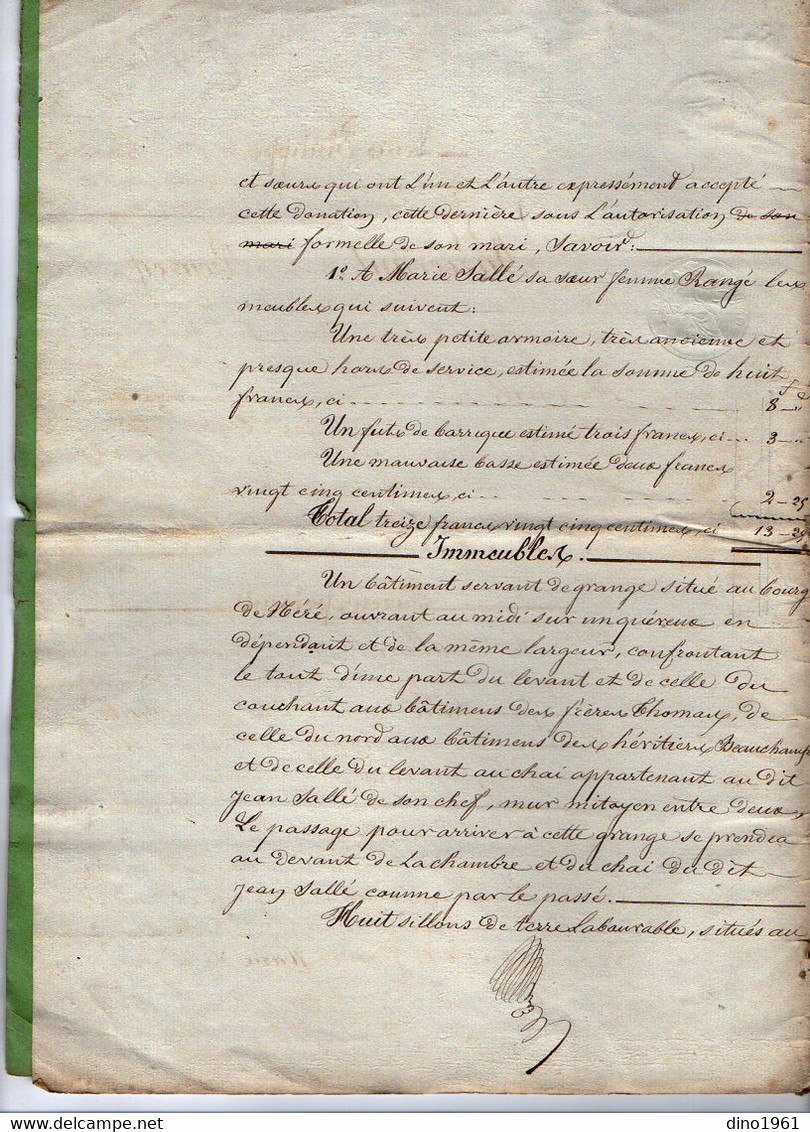 et sœurs qui ont L'un et L'autre expressément accepté
cette donation, cette dernière sous L'autorisation de son
mari formelle de son mari, Savoir:
1º A Marie Sallé sa sœur femme Rangé les
meubles qui suivent:
Une très petite armoire, très ancienne et
presque hors de service, estimée la somme de huit
francs, ci 8 - "
Un futs de barrique estimé trois francs, ci 3 - "
Une mauvaise basse estimée deux francs
vingt cinq centimes, ci 2 - 25
Total treize francs vingt cinq centimes, ci 13 - 25
Immeubles.
Un bâtiment servant de grange situé au bourg
de Néré, ouvrant au midi sur un quéreux en
dépendant et de la même largeur, confrontant
le tout d'une part du levant et de celle du
couchant aux bâtimens des frères Thomas, de
celle du nord aux bâtimens des héritiers Beauchamp
et de celle du levant au chai appartenant au dit
Jean Sallé de son chef, mur mitoyen entre deux,
Le passage pour arriver à cette grange se prendra
au devant de La chambre et du chai du dit
Jean Sallé comme par le passé.
Huit sillons de terre Labourable, situés au
dino1961